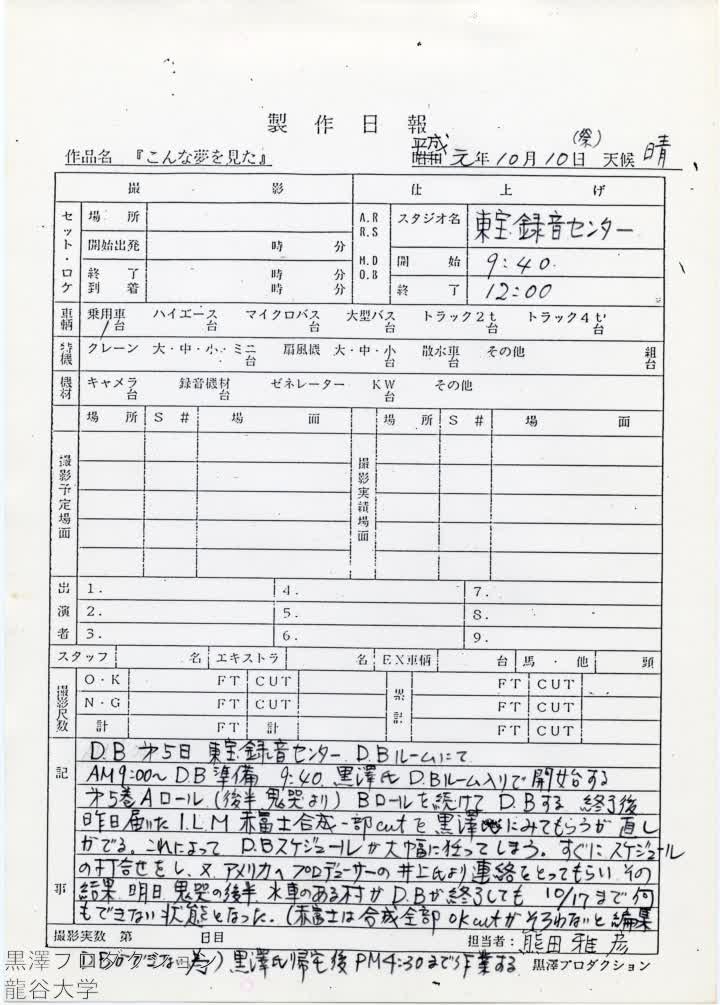 製作日報
作品名 『こんな夢を見た』 平成 元年10月10日(祭) 天候 晴
撮影 仕上げ
セット・ロケ 場所 A.R R.S M.D O.B スタジオ名 東宝録音センター
開始出発 時 分 開始 9:40
終了到着 時 分 終了 12:00
車輌 乗用車 1台 ハイエース 台 マイクロバス 台 大型バス 台 トラック2t 台 トラック4t 台
特機 クレーン 大・中・小・ミニ 台 扇風機 大・中・小 台 散水車 台 その他 組 台
機材 キャメラ 台 録音機材 ゼネレーター KW 台 その他
場所 S# 場面 場所 S# 場面
撮影予定場面 撮影実績場面
出演者 1. 4. 7.
2. 5. 8.
3. 6. 9.
スタッフ 名 エキストラ 名 EX車輌 台 馬・他 頭
撮影尺数 O・K FT CUT 累計 FT CUT
N・G FT CUT FT CUT
計 FT 計 FT CUT
記事
D.B 第5日 東宝録音センター D.Bルームにて
AM9:00〜D.B準備 9:40 黒澤氏 D.Bルーム入りで開始する
第5巻Aロール(後半 鬼哭より) Bロールを続けて D.Bする 終了後
昨日届いた I.L.M 赤富士合成一部cutを黒澤氏にみてもらうが直し
がでる。これによって D.Bスケジュールが大幅に狂ってしまう。すぐにスケジュール
の打合せをし、又、アメリカへプロデューサーの井上氏より連絡をとってもらい その
結果 明日 鬼哭の後半 水車のある村が D.Bが終了しても 10/17まで何
もできない状態となった。(赤富士は合成全部 OKcutがそろわないと編集
撮影実数 第 日目 担当者: 熊田雅彦
D.Bができない為) 黒澤氏帰宅後PM4:30まで作業する 黒澤プロダクション
黒澤プロダクション
龍谷大学